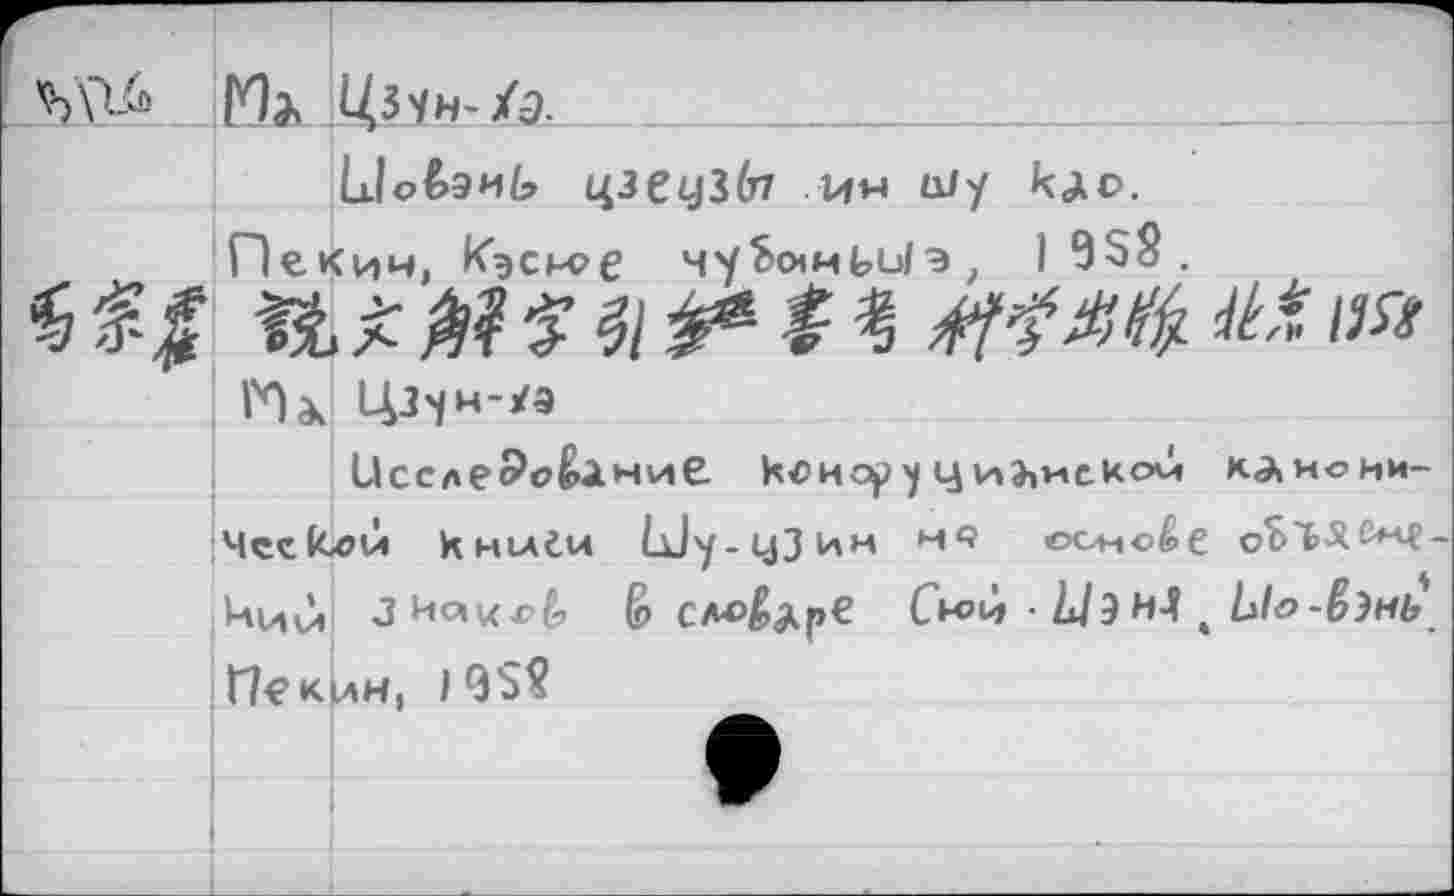 Ма Цзун-хэ.
Шовэнь цзецзы ин шу као.
Пекин, Кэсюе чубаньшэ, 1958.
馬宗霍 說文解字引經書考 科学出版 北京 1958
Ма Цзун-хэ
Исследование конфуцианской канони-
ческой книги Шу-цзин на основе объясне-
ний знаков в словаре Сюй Шэня Шо-вэнь.
Пекин, 1958